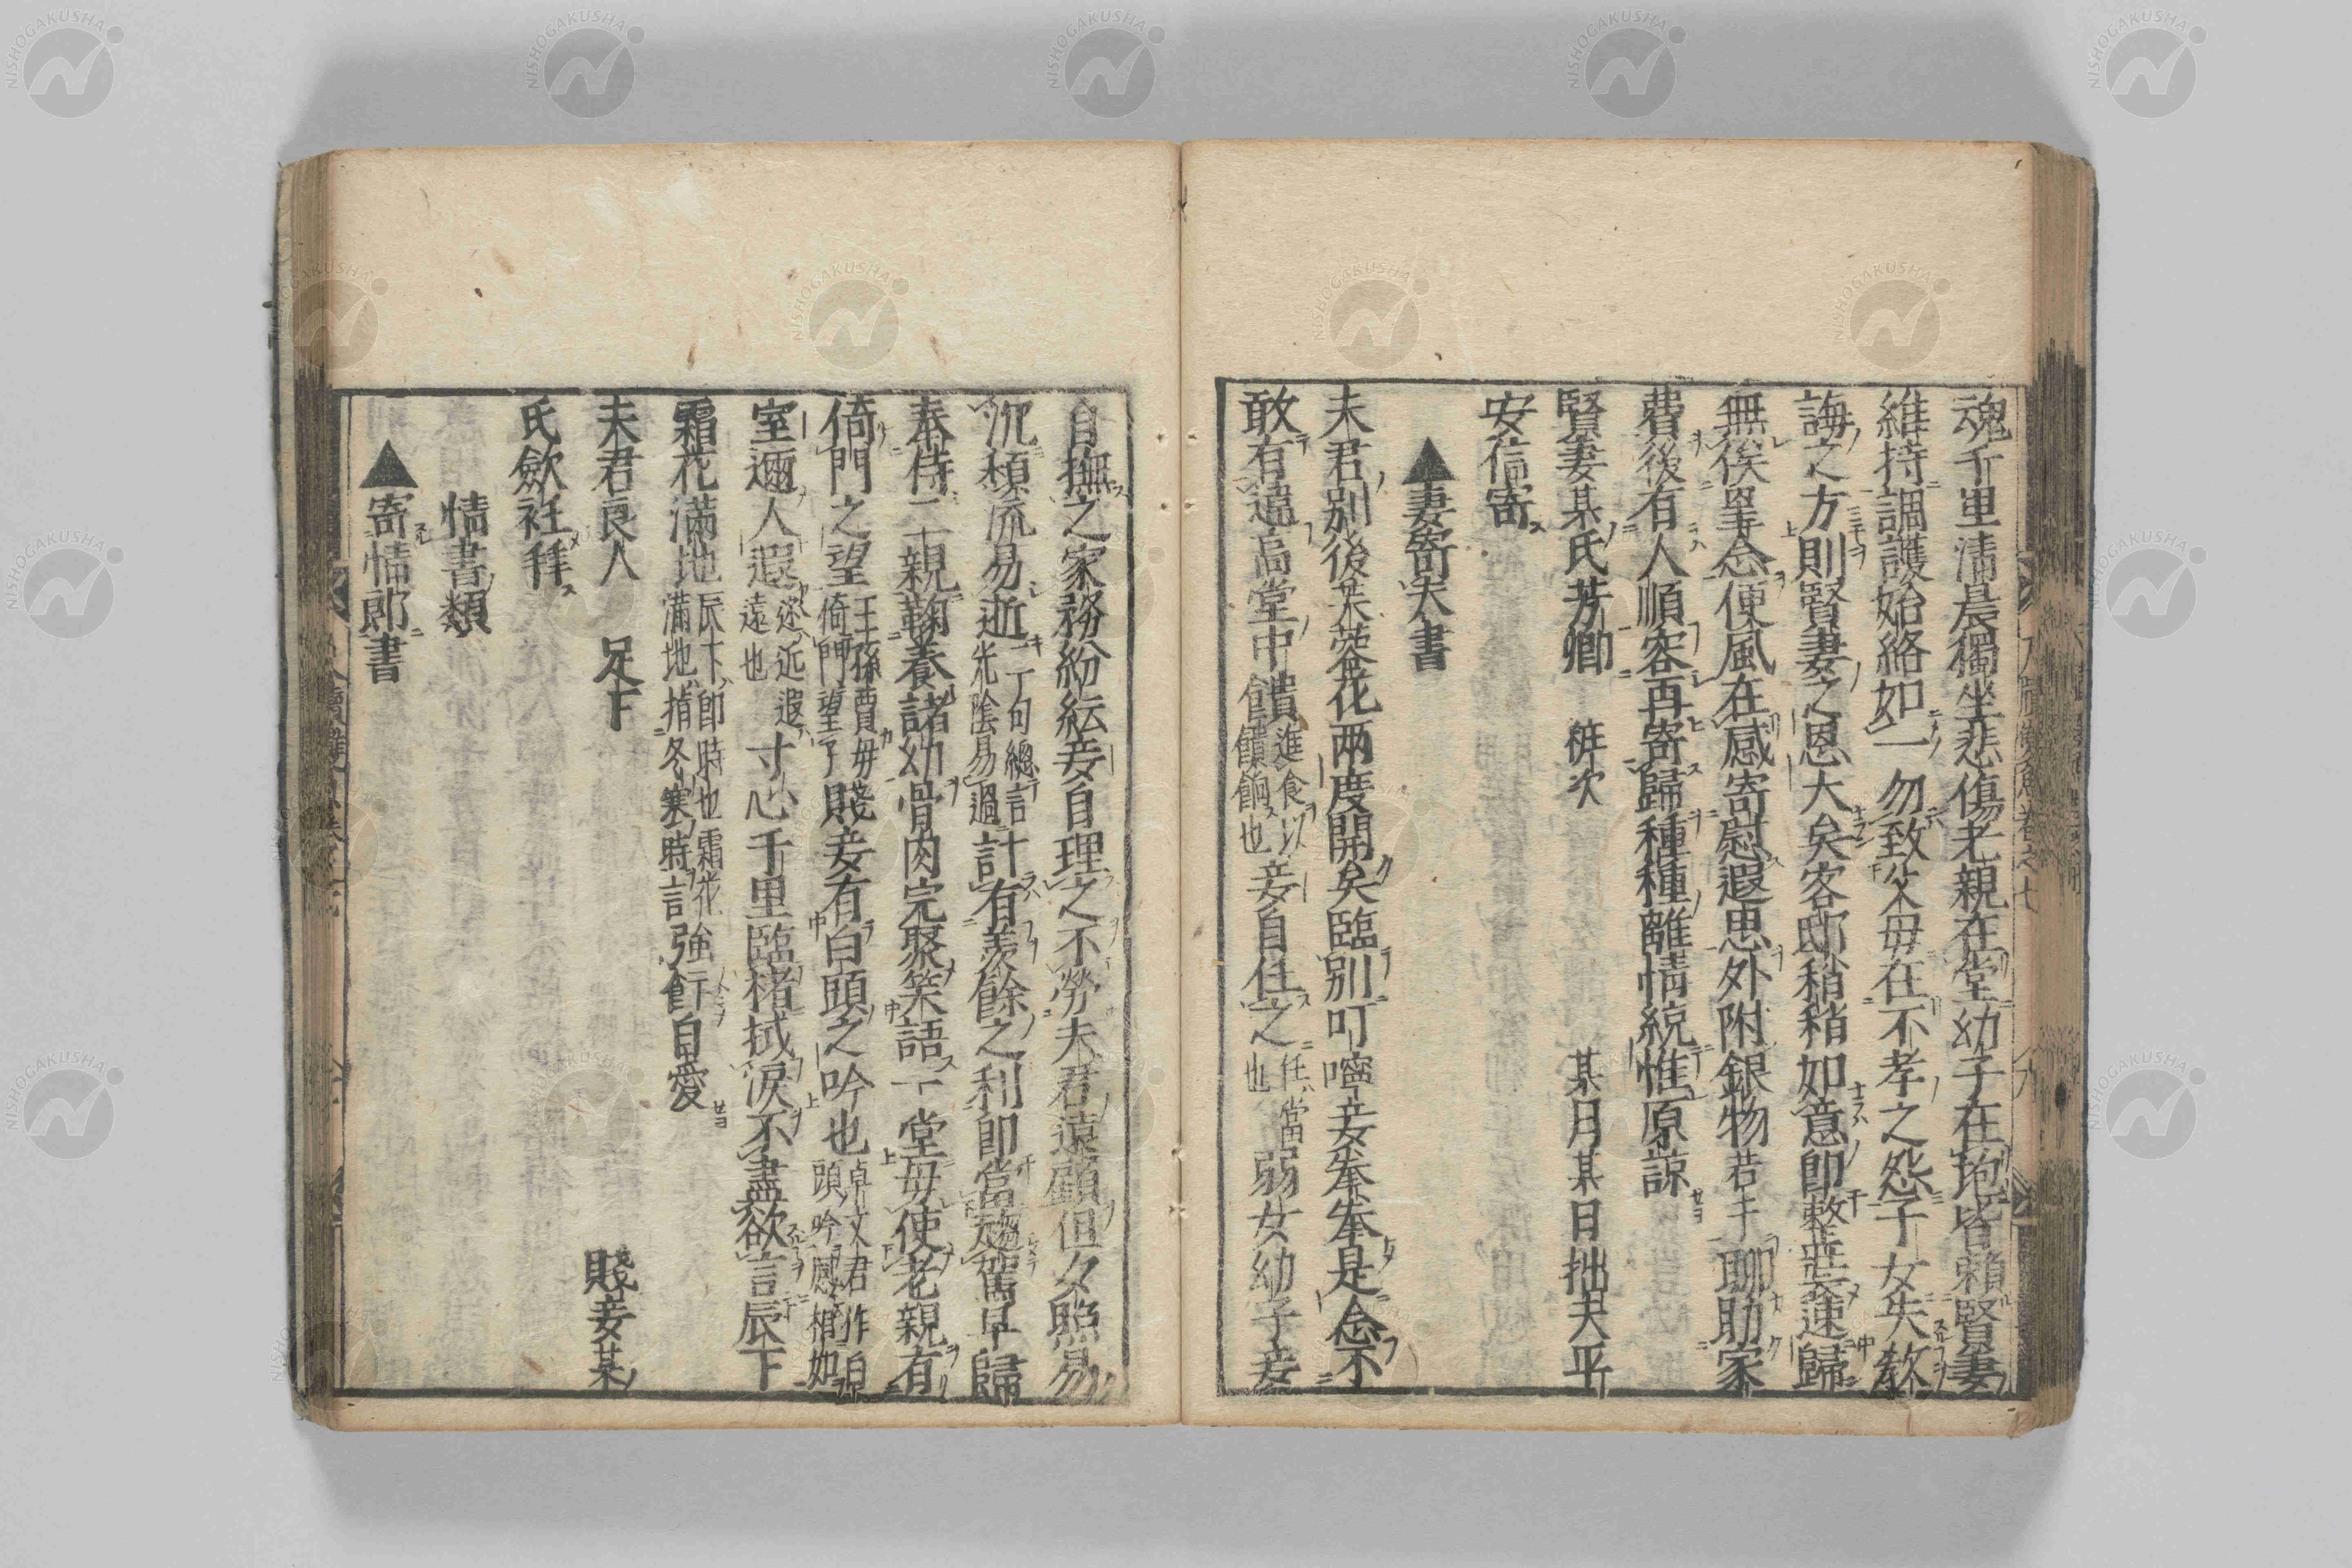 魂千里淸晨獨坐悲傷老親在堂幼子在抱皆賴賢妻
維持調護始終如一勿致父母在不孝之怨子女失教
誨之方則賢妻之恩大矣客邸稍稍如意即整裝速歸
無俟罣念便風在感寄慰遐思外附銀物若干聊助家
費後有人順容再寄歸種種離情統惟原諒
賢妻某氏芳卿 粧次 某月某日拙夫平
安信寄
▲妻寄夫書
夫君別後芙蓉花兩度開矣臨別叮嚀妾拳拳是念不
敢有違高堂中饋進食以饋餉也妾自任之任當也弱女幼子妾
自撫之家務紛紜妾自理之不勞夫君遠顧但夕照易
沉頽流易逝二句總言光陰易過計有羨餘之利即當趣駕早歸
奉侍二親鞠養諸幼骨肉完聚笑語一堂毋使老親有
倚門之望王孫賈母倚門望子賤妾有白頭之吟也卓文君作白頭吟感相如
室邇人遐邇近遐遠也寸心千里臨楮拭淚不盡欲言辰下
霜花滿地辰下即時也霜花滿地指冬寒時言強飡自愛
夫君良人 足下 賤妾某
氏歛衽拜
情書類
▲寄情郎書
NISHOGAKUSHA